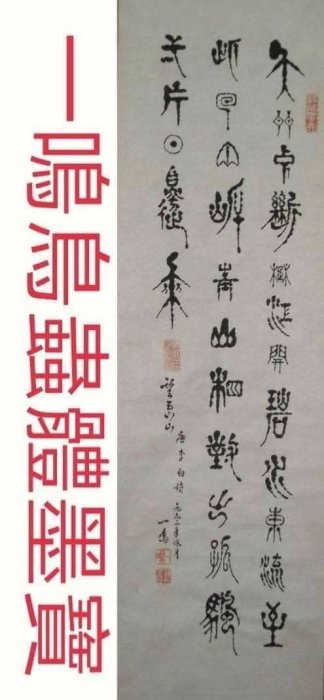 天門中斷楚江開碧水東流至
此回兩岸青山相對出孤帆
一片日邊來
望天门山
唐李白詩
一鳴
一鳴鳥蟲體墨寶